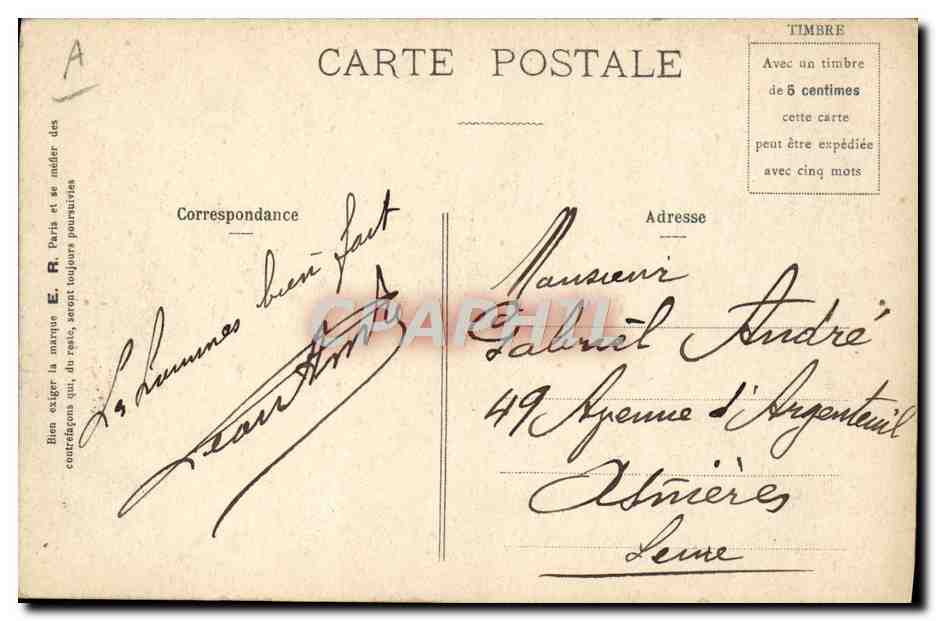 A
CARTE POSTALE
TIMBRE
Avec un timbre
de 5 centimes
cette carte
peut être expédiée
avec cinq mots
Bien exiger la marque E. R. Paris et se méfier des
contrefaçons qui, du reste, seront toujours poursuivies
Correspondance
bien fort
Adresse
Monsieur
Gabriel André
49 Avenue d'Argenteuil
Asnières
Seine
CPAPHIL